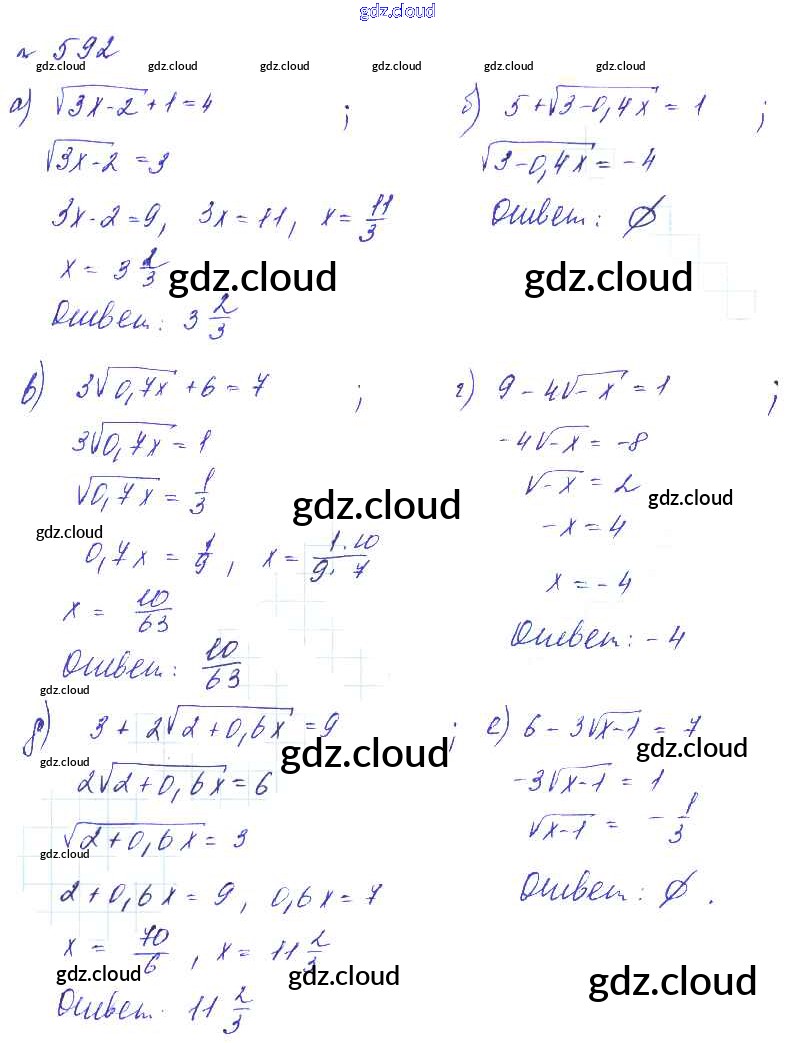 gdz.cloud
№ 592
gdz.cloud gdz.cloud gdz.cloud gdz.cloud gdz.cloud gdz.cloud
а) √(3x-2) + 1 = 4 ;
√(3x-2) = 3
3x-2 = 9, 3x = 11, x = 11/3
x = 3 2/3
gdz.cloud
Ответ: 3 2/3
б) 5 + √(3-0,4x) = 1 ;
√(3-0,4x) = -4
Ответ: ∅
gdz.cloud
в) 3√(0,7x) + 6 = 7 ;
3√(0,7x) = 1
√(0,7x) = 1/3
gdz.cloud
gdz.cloud
0,7x = 1/9, x = 1·10/9·7
x = 10/63
Ответ: 10/63
gdz.cloud
г) 9 - 4√(-x) = 1 ;
-4√(-x) = -8
√(-x) = 2
gdz.cloud
-x = 4
x = -4
Ответ: -4
д) 3 + 2√(2+0,6x) = 9 ;
gdz.cloud
gdz.cloud
2√(2+0,6x) = 6
√(2+0,6x) = 3
gdz.cloud
2+0,6x = 9, 0,6x = 7
x = 70/6, x = 11 2/3
gdz.cloud gdz.cloud
Ответ: 11 2/3
е) 6 - 3√(x-1) = 7
gdz.cloud
-3√(x-1) = 1
√(x-1) = - 1/3
Ответ: ∅.
gdz.cloud